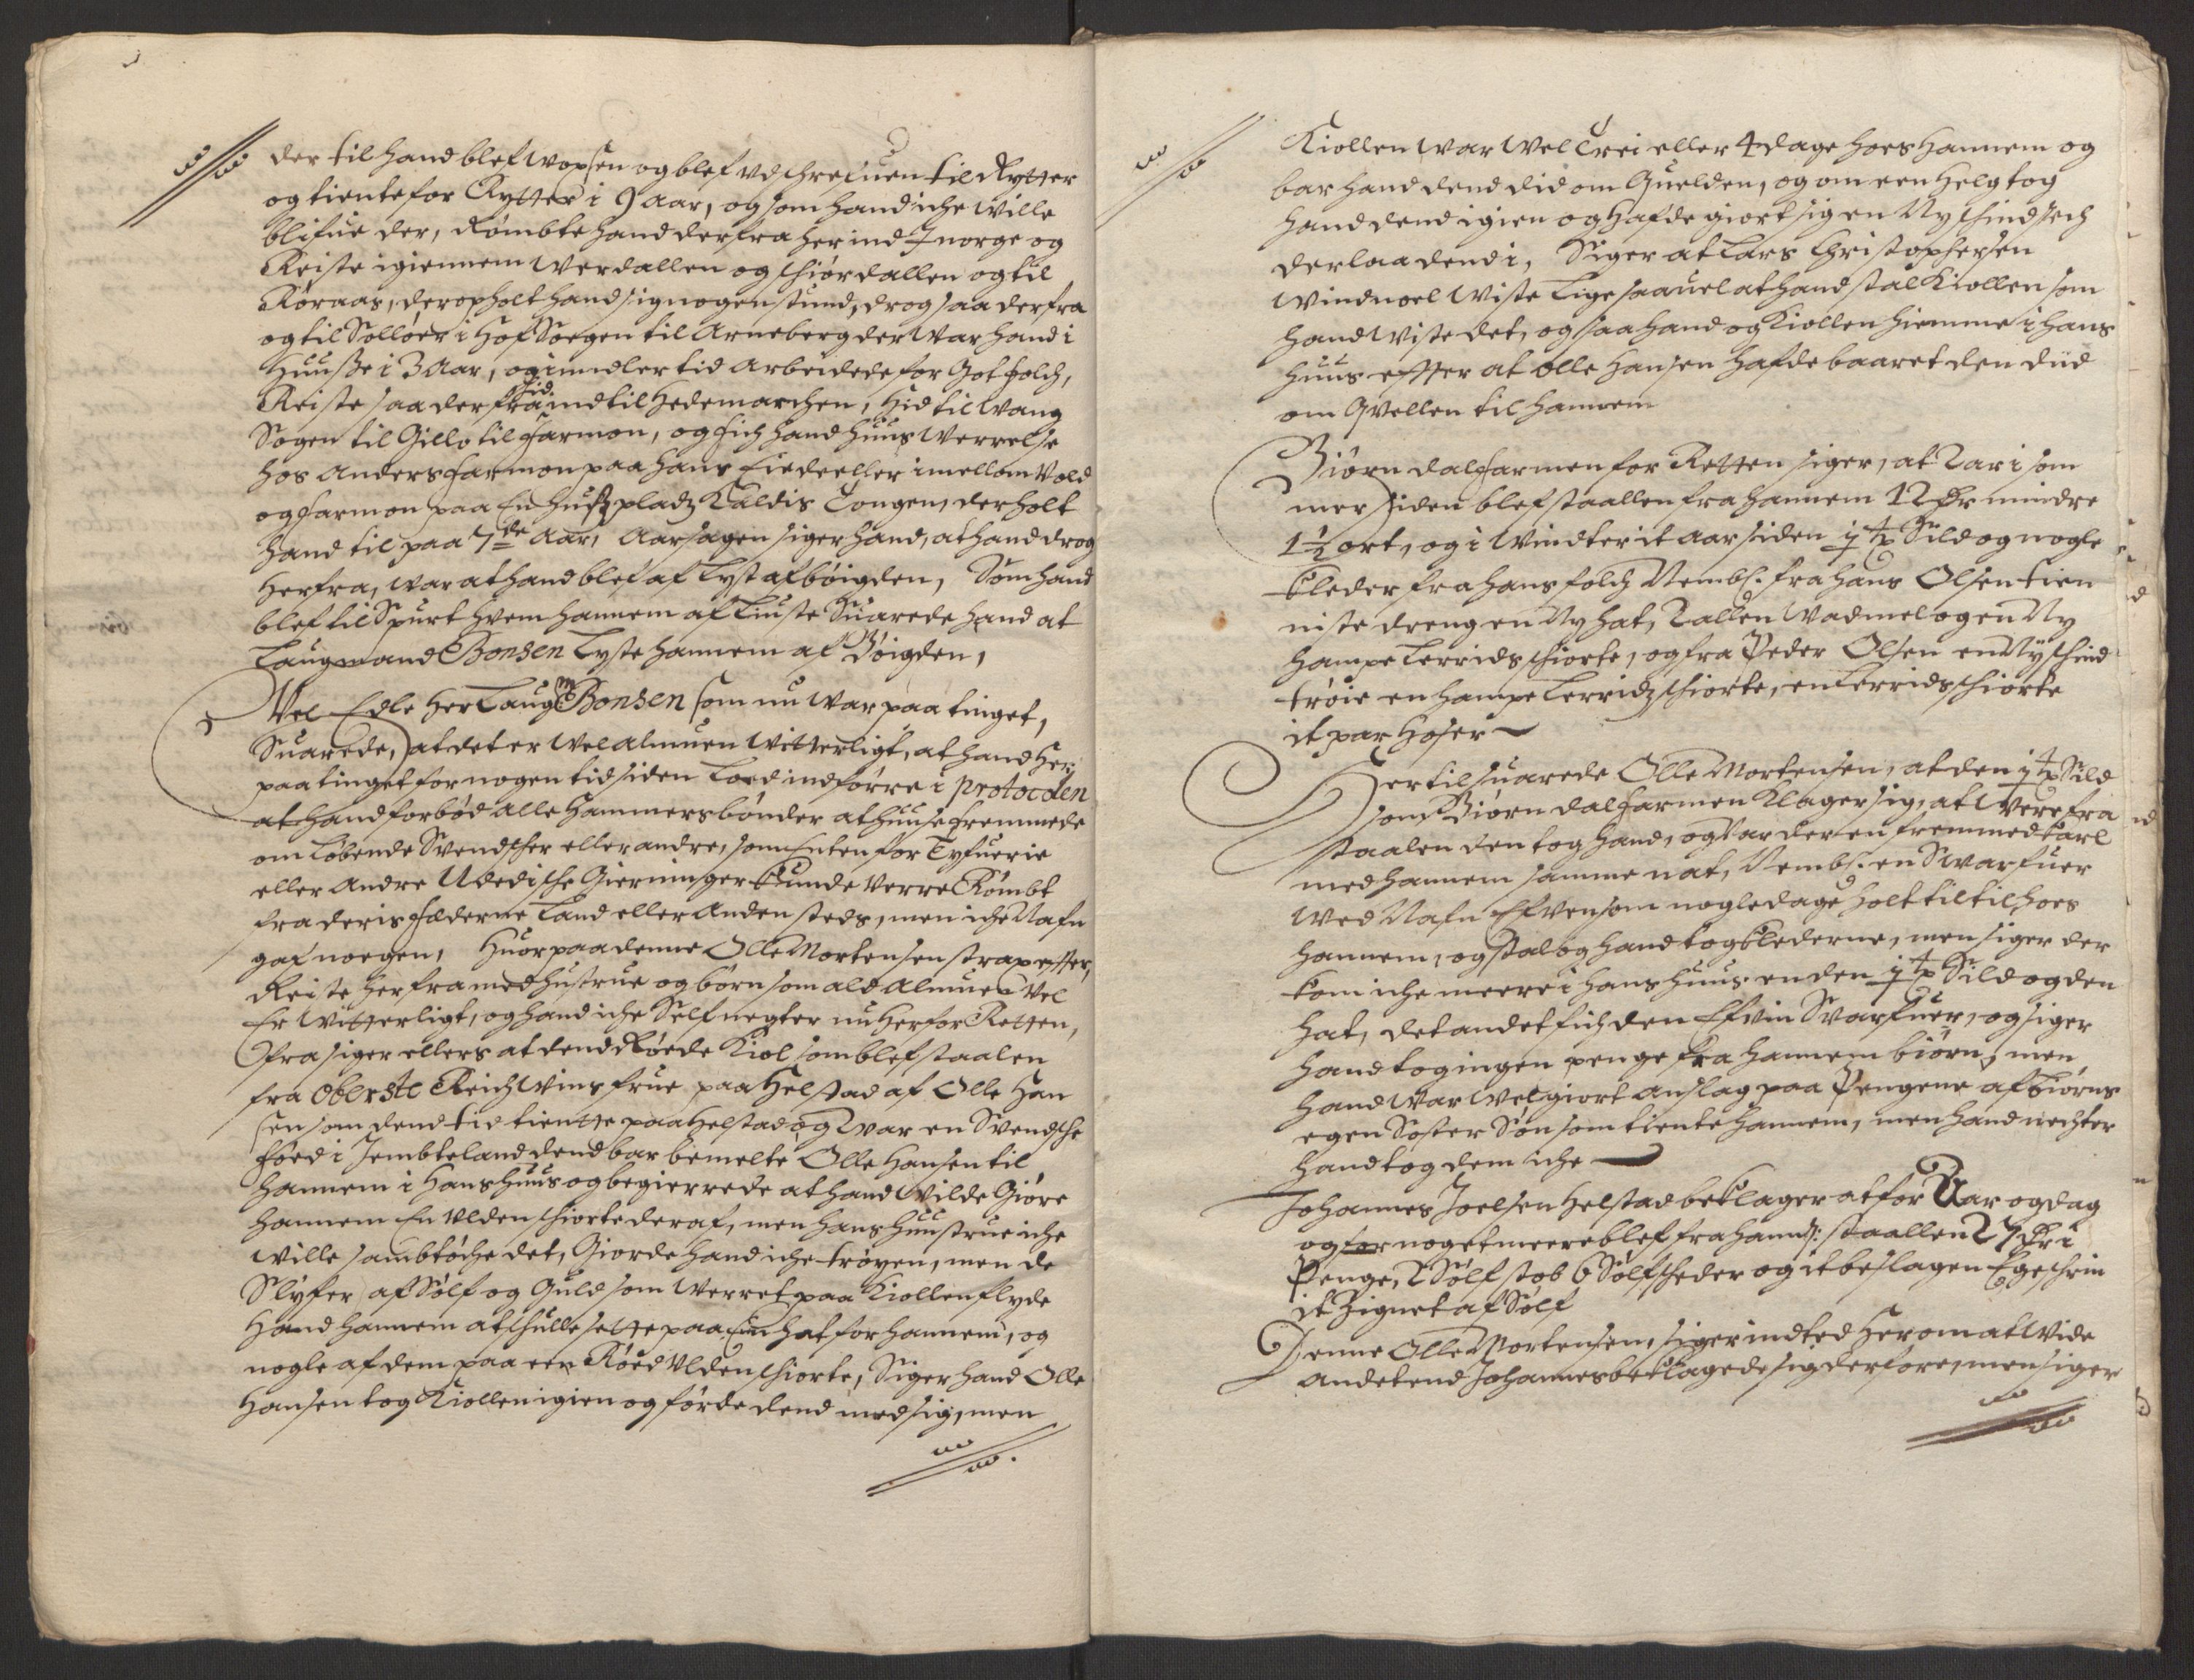 der til hand blef woxsen og blef vdschrefuen til Rytter
og tiente for Rytter i 9 aar, og som hand iche wille
blifue der, Römbte hand derfra her ind I norge og
Reiste igiennem Werdallen og schiördallen og til
Röraas, der opholt hand sig nogen stund, drog saa derfra
og til Sollöer i Hof Soegen til Arneberg der war hand i
Huusse i 3 aar, og imidlertid arbeidede for Got folch,
Reiste saa der fra hid ind til Hedemarchen, hid til wang
Sogen til Gillo til farmon, og fich hand huus werrelse
hos Anders farmon paa hans Eiede eller imellom Vold
og farmon paa En huszpladz kaldis Tongen, der holt
hand til paa 7de aar, Aarsagen siger hand, at hand drog
herfra, war at hand blef af lyst af böigden, Som hand
blef til Spurt hvem hannem af liuste Suarede hand at
Laugmand Bonsen lyste hannem af Böigden,
Vel Edle Her Laugm Bonsen som nu war paa tinget,
Suarede, at det er wel almuen witterligt, at hand her
paa tinget for nogen tid siden loed indförre i protocolen
at hand forböd alle Hammers bönder at huuse fremmede
om löbende Svendscher eller andre, som Enten for Tyfuerie
eller andre Uledische Gierninger kunde verre Römbt
fra deris fæderne land eller anden steds, men iche Nafn
gaf noegen, Huorpaa denne Olle Mortensen strax effter,
Reiste her fra med hustrue og börn som ald Almuen vel
Er witterligt, og hand iche Self negter nu her for Retten,
fra siger ellers at dend Röede Kiol som blef staalen
fra Oberste Reichwins frue paa Helstad af Olle Han
sen som dend tid tientte paa Helstad og war en Svendsche
föed i Jembteland dend bar bemelte Olle Hansen til
hannem i hans huus og begierrede at hand wilde Giöre
hannem En Ulden schiorte der af, men hans huustrue iche
wille sambtöche det, Giorde hand iche tröyen, men de
Slyfer af Sölf og Guld som werret paa Kiollen flyde
Hand hannem at schulle sette paa Em hat for hannem, og
nogle af dem paa een Röed Ulden schiorte, Siger hand Olle
Hansen tog Kiollen igien og förde dend med sig, men
Kiollen war wel Trei eller 4 dage hoes hannem og
bar hand dend did om Quelden, og om een Helg tog
hand dend igien og hafde giort sig en Ny schindsech
der laa dend i, Siger at Lars Christophersen
Windnoel wiste lige saa uel at hand stal Kiollen som
hand wiste det, og saa hand og Kiollen hiemme i hans
huus effter at Olle Hansen hafde baaret den diid
om Qvellen til hannem
Biörn dalfarmen for Retten siger, at 2 aar i som
mer siden blef staallen fra hannem 12 Dr mindre
1½ ort, og i windter it aar siden Sild og nogle
kleder fra hans folch Nembl. fra hans Olsen tien
niste dreng en Ny hat, 2 allen Wadmel og en Ny
hampe lerrids schiorte, og fra Peder Olsen en Ny schind
tröie en hampe lerridz schiorte, en lerrids schiorte
it par Hoser
Hertil suarede Olle Mortensen, at den Sild
som Biörn dalfarmen klager sig, at were fra
staalen den tog hand, og var der en fremmed karl
med hannem samme nat, Nembl. en Swarfuer
wed Nafn Efven som nogle dage holt til til hoes
hannem, og stal og hand tog klederne, men siger der
kom iche meere i hans huus enden Sild og den
hat, det andet fich den Efvin Svarfuer, og siger
hand tog ingen penge fra hannem biörn, men
hand war wel giort anslag paa Pengene af biörns
egen Söster Sön som tiente hannem, men hand nechter
hand tog dem iche
Johannes Joelsen Helstad beklager at for Aar og dag
og for noget meere blef fra hannem staallen 27 Dr i
Penge, 2 Sölf stob 6 Sölfscheder og it beslagen Egeschrin
it Zignet af Sölf
Denne Olle Mortensen, siger indted her om at wide
andet end Johannes beklagede sig derfore, men siger